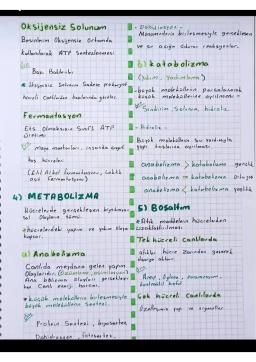 Oksijensiz Solunum
Besinlerin Oksijensiz Ortamda
kullanılarak ATP Sentezlenmesi
Bazı Bakteriler
Oksijensiz Solunum Sadece prokaryot
hücreli Canlılarda
Fermantasyon
ETS Olmaksızın ATP
Üretimi
Maya mantarları, insanda çizgili
kas hücreleri
(Etil Alkol Fermantasyonu, Laktik
asit Fermantasyonu)
4) METABOLİZMA
Hücrelerde gerçekleşen biyokimya-
sal Olayların tümü.
hücrelerdeki yapım ve yıkım Olayını
kapsar.
a) Anabolizma
Canlıda meydana gelen yapım
Olaylarıdır.
Ana bölünme Olayları gerçekleşir
küçük moleküllerin birleşmesiyle
büyük moleküllerin Sentezi.
Protein Sentezi, biyosentez
Dehidrasyon, Fotosentez
- Dehidrasyon -
Monomerlerin birleşmesiyle gerçekleşen
ve su açığa çıkaran reaksiyonlar.
b) katabolizma
(Yıkım,
büyük moleküllerin parçalanarak
küçük moleküllerine ayrılması
Sindirim, Solunum, hidroliz
- Hidroliz -
Büyük moleküllerin su yardımıyla
yapı taşlarına ayrılması.
anabolizma > katabolizma gençlik
anabolizma = katabolizma
anabolizma < katabolizma yaşlılık
5) Boşaltım
Atık maddelerin hücreden
Uzaklaştırılması.
Tek hücreli Canlılarda
Atıklar hücre Zarından geçerek
dışarıya atılır.
Amip, Öglena, paramesyum,
Çok hücreli Canlılarda
Özelleşmiş yapı ve organlar